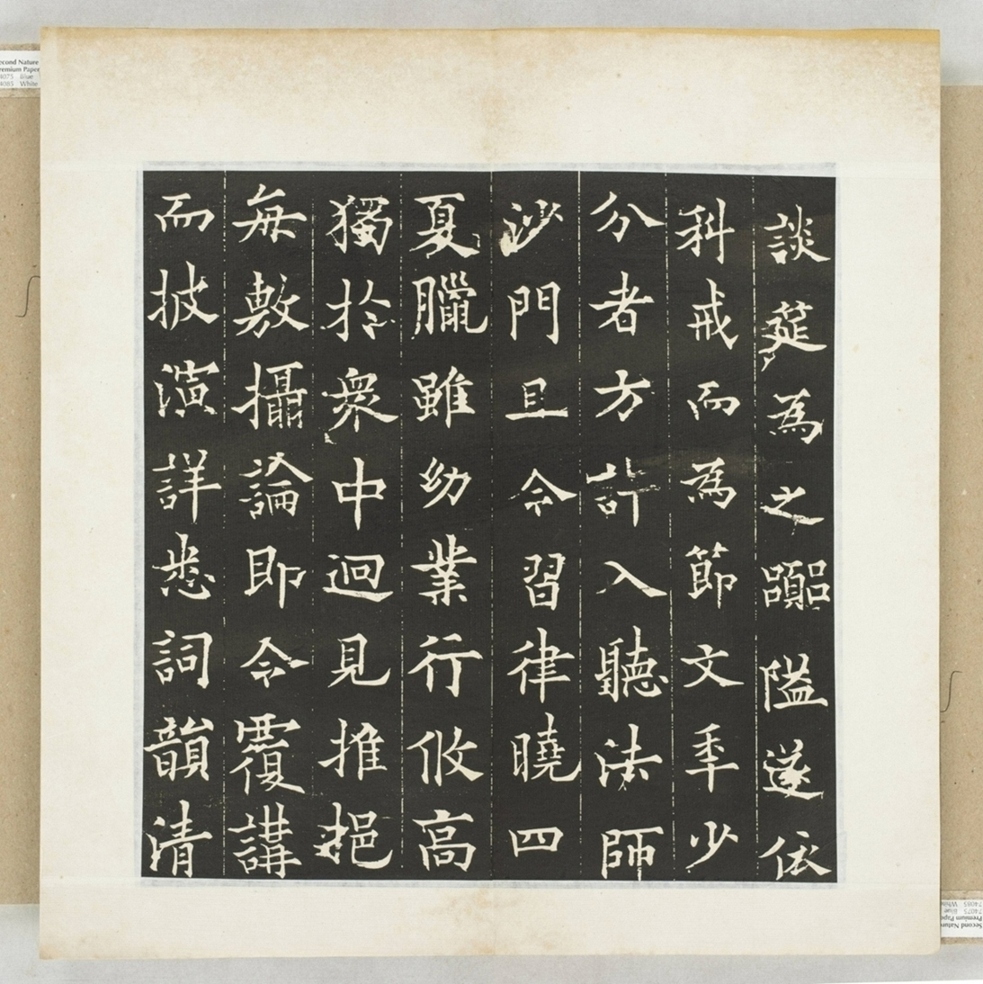 談莚為之踊隘遂依
科戒而為節文年少
分者方許入聽法師
沙門且令習律曉四
夏臘雖幼業行攸高
獨於衆中迥見推挹
每敷攝論即令覆講
而披演詳悉詞韻清
Second Nature
Premium Paper
74075 Blue
74085 White
Second Nature
Premium Paper
74075 Blue
74085 White